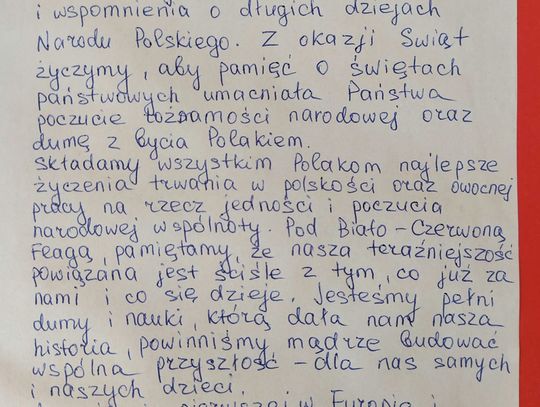 i wspomnienia o długich dziejach
Narodu Polskiego. Z okazji Świąt
życzymy, aby pamięć o świętach
państwowych umacniała Państwa
poczucie tożsamości narodowej oraz
dumę z bycia Polakiem.
Składamy wszystkim Polakom najlepsze
życzenia trwania w polskości oraz owocnej
pracy na rzecz jedności i poczucia
narodowej wspólnoty. Pod Biało-Czerwoną
Feagą, pamiętamy, że nasza teraźniejszość
powiązana jest ściśle z tym, co już za
nami i co się dzieje. Jesteśmy pełni
dumy i nauki, którą dała nam nasza
historia, powinniśmy mądrze budować
wspólna przyszłość – dla nas samych
i naszych dzieci.
pierwszej w Europie i